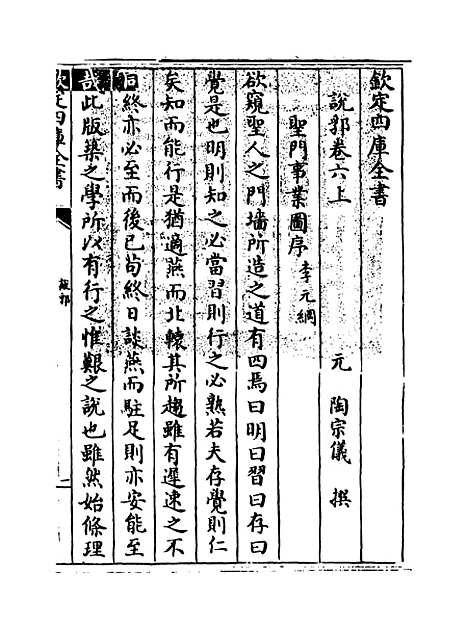 欽定四庫全書
說郛卷六上
元 陶宗儀 撰
聖門事業圖序 李元綱
欲窺聖人之門墻所造之道有四焉曰明曰習曰存曰
覺是也明則知之必當習則行之必熟若夫存覺則仁
矣知而能行是猶適燕而北轅其所趨雖有遲速之不
同終亦必至而後已苟終日談燕而駐足則亦安能至
哉此版築之學所以有行之惟艱之說也雖然始條理
欽定四庫全書
說郛
一